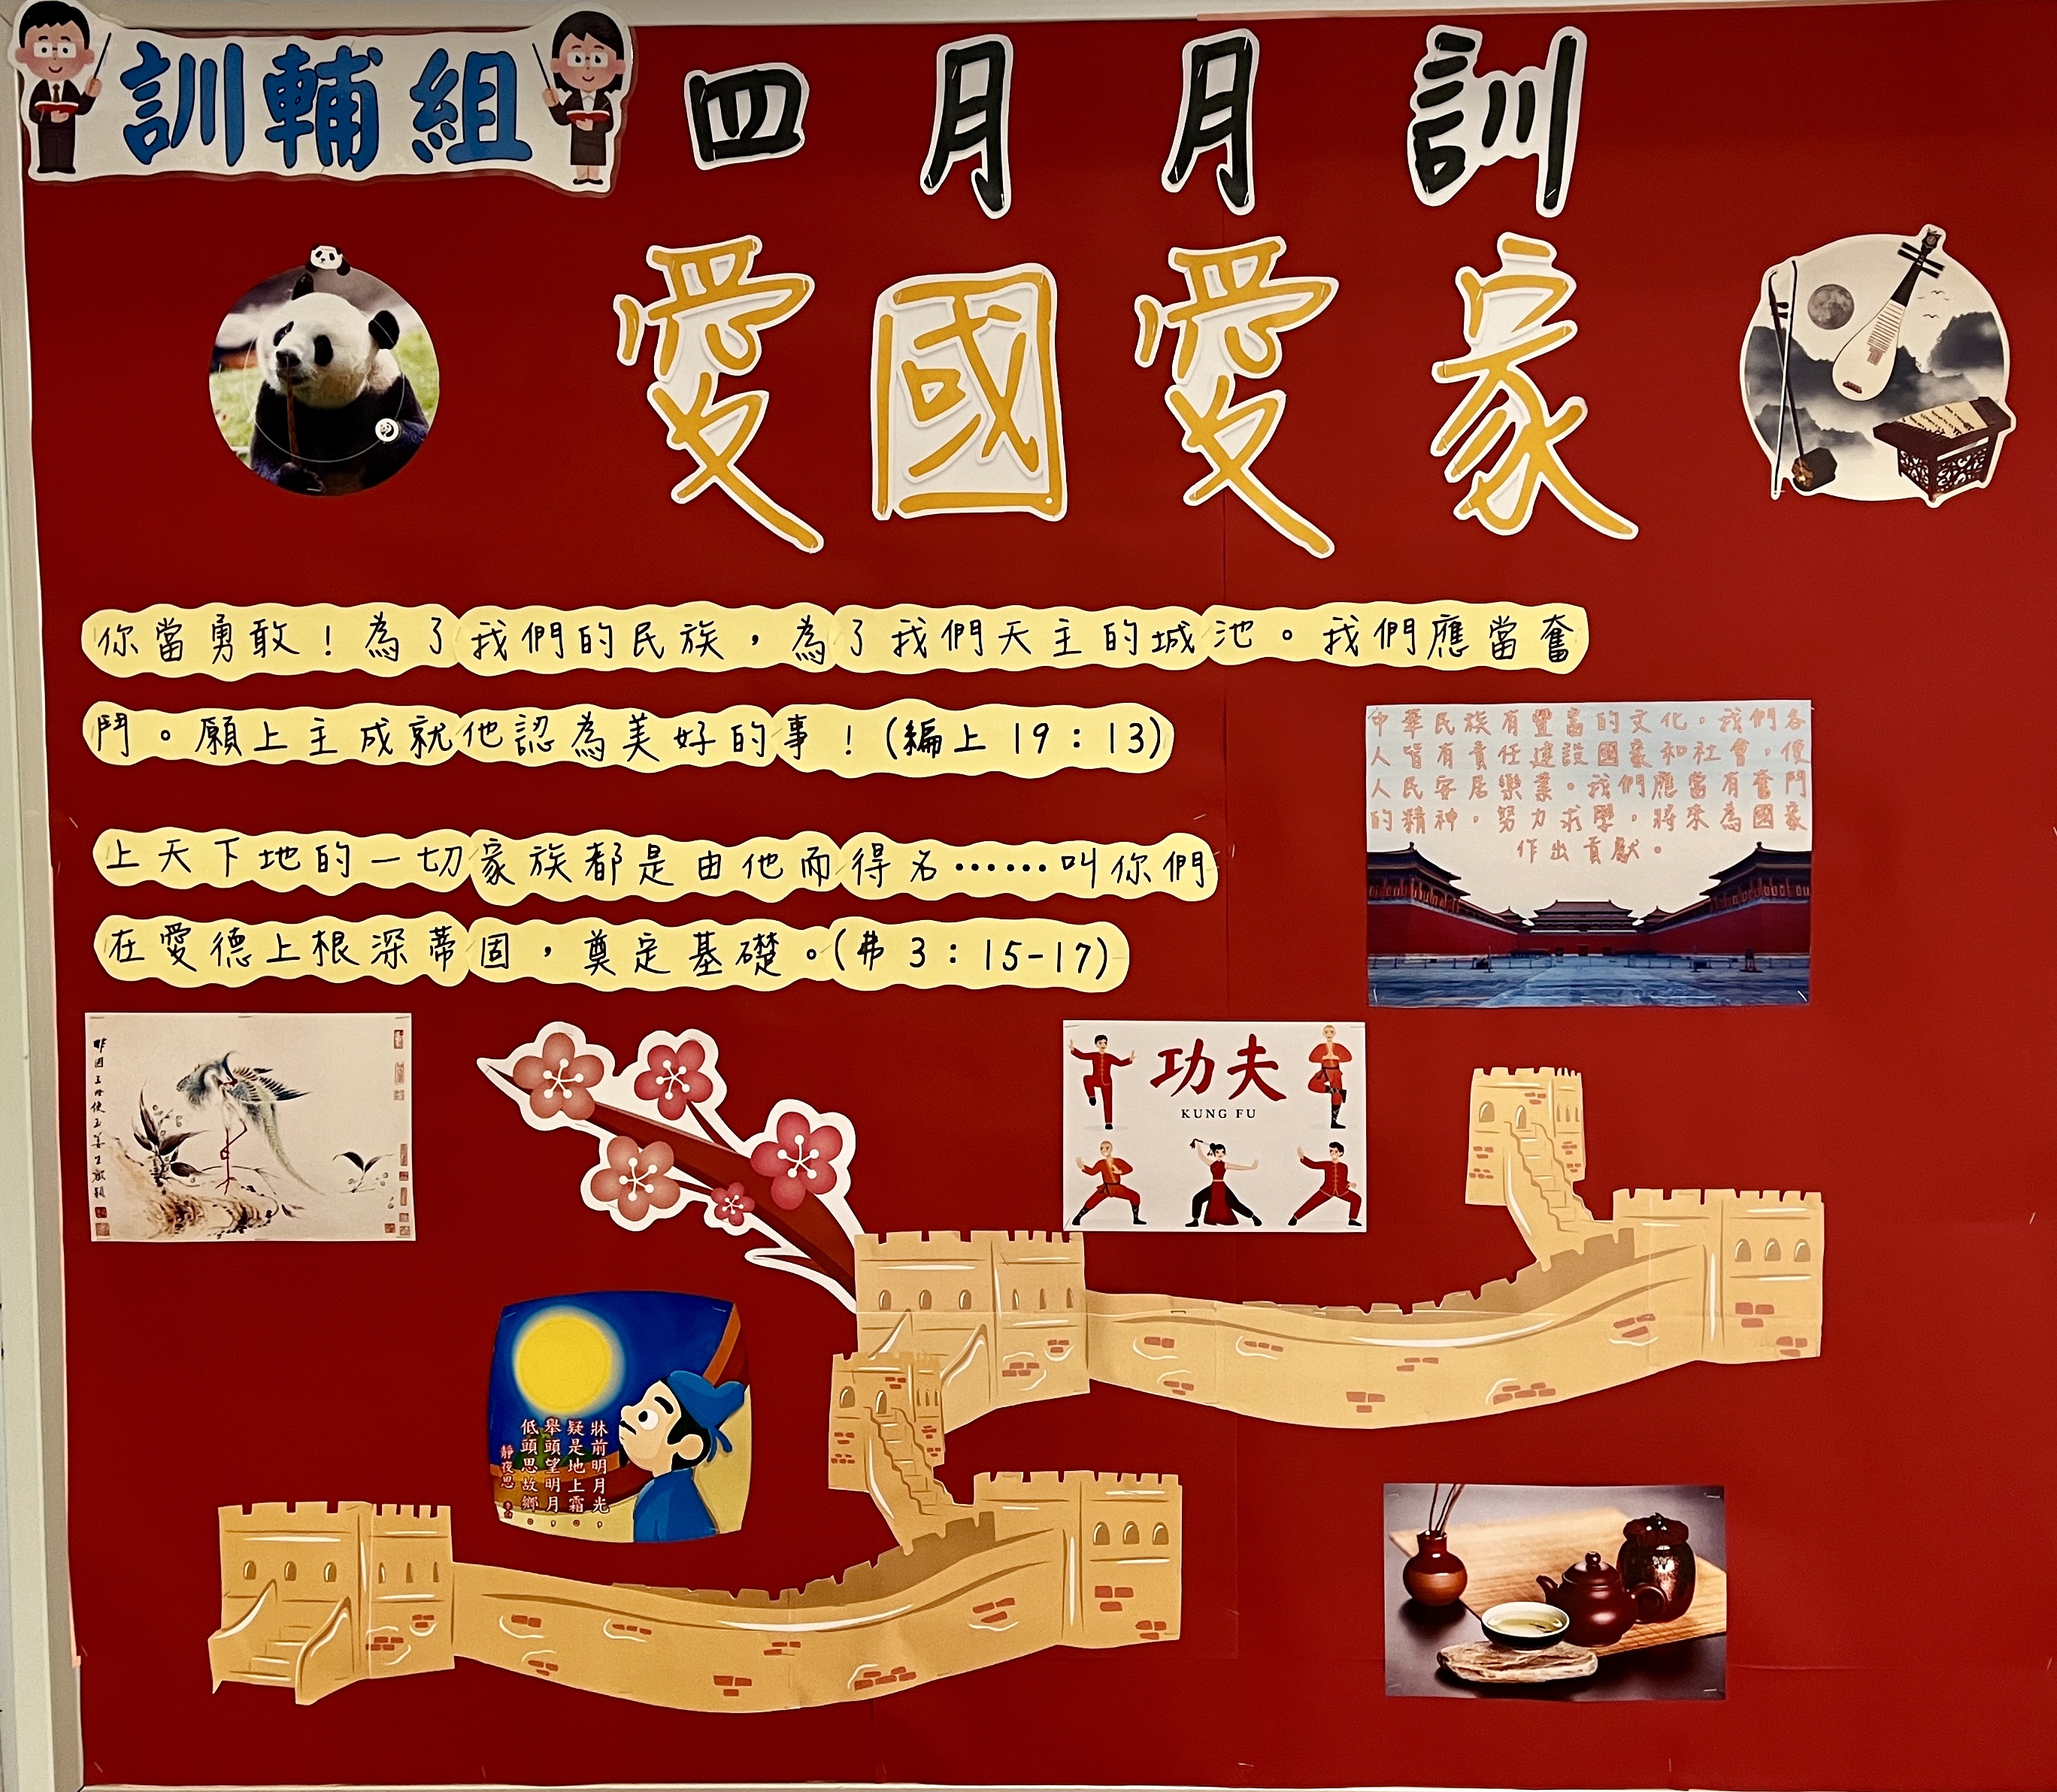 訓輔組
四月月訓
愛國愛家
你當勇敢！為了我們的民族，為了我們天主的城池。我們應當奮
鬥。願上主成就他認為美好的事！(編上 19：13)
上天下地的一切家族都是由他而得名……叫你們
在愛德上根深蒂固，奠定基礎。(弗 3：15-17)
中華民族有豐富的文化，我們各
人皆有責任建設國家和社會，使
人民安居樂業。我們應當有奮鬥
的精神，努力求學，將來為國家
作出貢獻。
功夫
KUNG FU
牀前明月光，
疑是地上霜。
舉頭望明月，
低頭思故鄉。
靜夜思